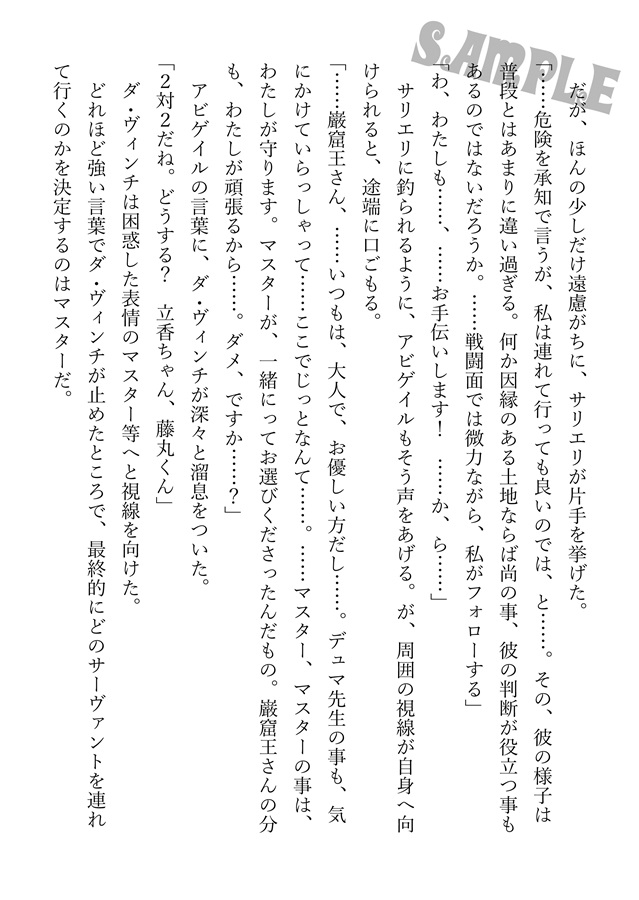 SAMPLE
だが、ほんの少しだけ遠慮がちに、サリエリが片手を挙げた。
「……危険を承知で言うが、私は連れて行っても良いのでは、と……。その、彼の様子は
普段とはあまりに違い過ぎる。何か因縁のある土地ならば尚の事、彼の判断が役立つ事も
あるのではないだろうか。……戦闘面では微力ながら、私がフォローする」
「わ、わたしも……、……お手伝いします！　……か、ら……」
サリエリに釣られるように、アビゲイルもそう声をあげる。が、周囲の視線が自身へ向
けられると、途端に口ごもる。
「……巌窟王さん、……いつもは、大人で、お優しい方だし……。デュマ先生の事も、気
にかけていらっしゃって……ここでじっとなんて……。……マスター、マスターの事は、
わたしが守ります。マスターが、一緒にってお選びくださったんだもの。巌窟王さんの分
も、わたしが頑張るから……。ダメ、ですか……？」
アビゲイルの言葉に、ダ・ヴィンチが深々と溜息をついた。
「２対２だね。どうする？　立香ちゃん、藤丸くん」
ダ・ヴィンチは困惑した表情のマスター等へと視線を向けた。
どれほど強い言葉でダ・ヴィンチが止めたところで、最終的にどのサーヴァントを連れ
て行くのかを決定するのはマスターだ。